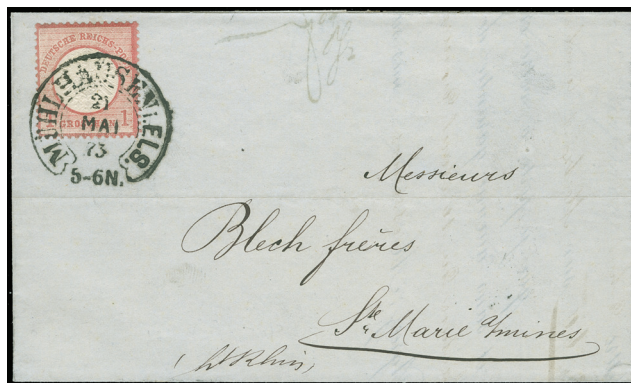 DEUTSCHE REICHS-POST
1
GROSCHEN
1
MÜHLHAUSEN I. ELS.
21
MAI
73
5-6N.
Messieurs
Blech frères
Ste Marie a/mines
(Ht Rhin)